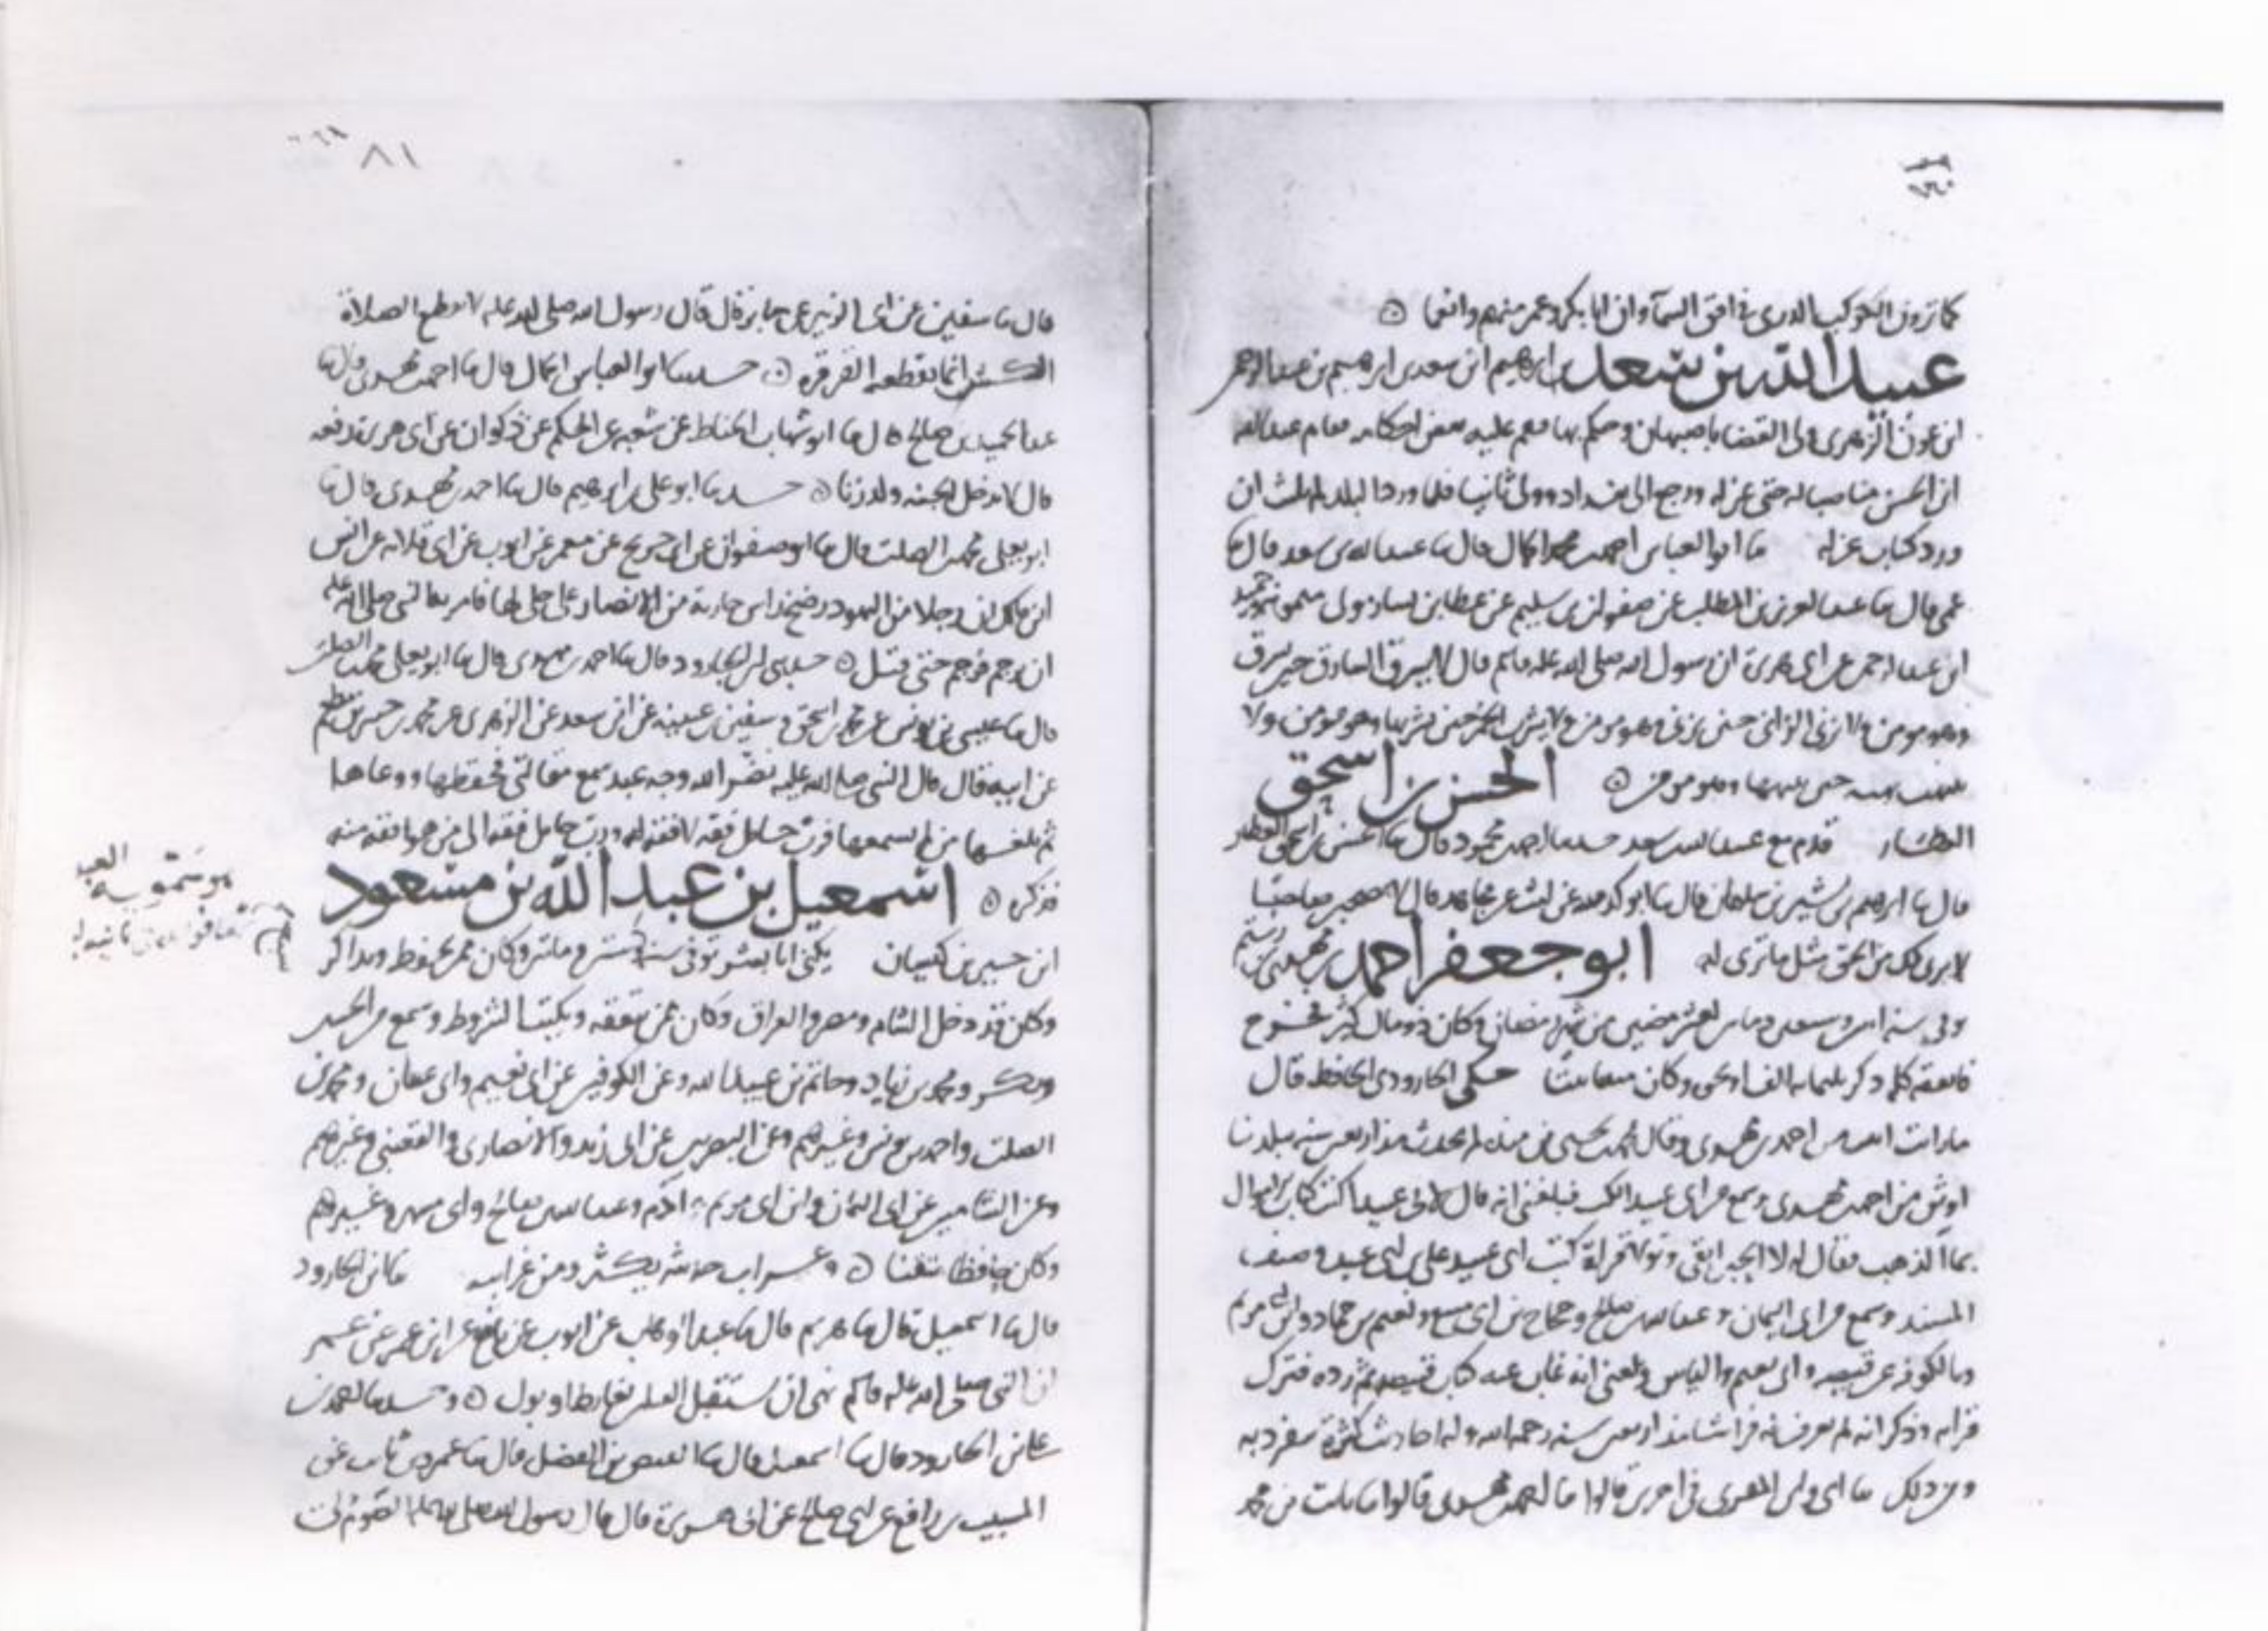 كما ترون الكوكب الدرى فى افق السمآ وان ابا بكر وعمر منهم وانعما
عبيد الله بن سعد بن ابرهيم ابن سعد بن ابرهيم بن عبد الرحمن
ابن عوف الزهرى ولى القضا باصبهان وحكم بها فقام عبد الله
ابن الحسن مناصبا له حتى عزله ورجع الى بغداد وولى ثانيا فلما ورد البلد لم يلبث ان
ورد كتاب عزله ما ابو العباس احمد بن محمد قال ما عبيد الله بن سعد قال ما
عمى قال ما عبد العزيز بن المطلب عن صفوان بن سليم عن عطا بن يسار مولى ميمونة وحميد
ابن عبد الرحمن عن ابى هريرة ان رسول الله صلى الله عليه وسلم قال لا يسرق السارق حين يسرق
وهو مومن ولا يزنى الزانى حين يزنى وهو مومن ولا يشرب الخمر حين يشربها وهو مومن ولا
ينتهب نهبه حين ينتهبها وهو مومن الحسن بن اسحق
العطار قدم مع عبيد الله بن سعد حدثنا احمد بن محمود قال ما الحسن بن اسحق العطار
قال ما ابرهيم بن بشير بن سلمان قال ما ابو كدينة عن ليث عن مجاهد قال لا تصحبن صاحبا
لا يرى لك من الحق مثل ما ترى له ابو جعفر احمد بن مهدى بن رستم
توفى سنة اثنتين وسبعين ومايتين لعشر مضين من شهر رمضان وكان ذو مال كثير نحو من
فانفقه كله وذكر ثلثمايه الف درهم حكى الجارودى الحافظ قال
ما رايت اثبت من احمد بن مهدى وقال محمد بن يحيى بن منده لم يحدث منذ اربعين سنه ببلدنا
اوثق من احمد بن مهدى وسمع من ابى عبيد الله فبلغنى انه قال لابى عبيد اكتب كتاب الاموال
بماآ الذهب فقال له لا الحبر ابقى وتولى قراءة كتب ابى عبيد على ابى عبيد وصنف
المسند وسمع من ابى اليمان وعبد الله بن صالح وحجاج بن ابى منيع ونعيم بن حماد وابن ابى مريم
وبالكوفة عن قبيصه وابى نعيم والناس وبلغنى انه غاب عنه كتاب قبيصه ثم رده فترك
قراءته وذكر انه لم يعرف له فراشا منذ اربعين سنه رحمه الله وله احاديث كثيرة يتفرد به
ومن ذلك ما ابى فى اخرين قالوا ما احمد بن مهدى قالوا ما ثابت بن محمد
٨١
قال ما سفين عن ابى الزبير عن جابر قال قال رسول الله صلى الله عليه لا يقطع الصلاة
الكشر انما يقطعه القرقرة حدثنا ابو العباس الجمال قال ما احمد بن مهدى قال ما
عبد الحميد بن صالح قال ما ابو شهاب الحناط عن شعبه عن الحكم عن ذكوان عن ابى هريرة رفعه
قال لا يدخل الجنه ولد زنا حدثنا ابو على بن ابرهيم قال ما احمد بن مهدى قال ما
ابو يعلى محمد بن الصلت قال ما ابو صفوان عن ابن جريج عن معمر عن ايوب عن ابى قلابه عن انس
ابن ملك ان رجلا من اليهود رضخ راس جارية من الانصار على حلى لها فامر به النبى صلى الله عليه
ان يرجم فرجم حتى قتل حدثنى ابن الجارود قال ما احمد بن مهدى قال ما ابو يعلى محمد بن الصلت
قال ما عيسى بن يونس عن محمد بن اسحق وسفين بن عيينه عن ابن سعد عن الزهرى عن محمد بن جبير بن مطعم
عن ابيه قال قال النبى صلى الله عليه نضر الله وجه عبد سمع مقالتى فحفظها ووعاها
ثم بلغها من لم يسمعها فرب حامل فقه لا فقه له ورب حامل فقه الى من هو افقه منه
فذكره اسمعيل بن عبد الله بن مسعود
هو سمويه
ابن جبير بن كيسان يكنى ابا بشر توفى سنة ستين ومايتين وكان ممن يحفظ ويذاكر
وكان قد دخل الشام ومصر والعراق وكان ممن يتفقه ويكتب الشروط وسمع من الحسين
وبكر ومحمد بن زياد وحاتم بن عبيد الله وعن الكوفيين عن ابى نعيم وابى غسان ومحمد بن
الصلت واحمد بن يونس وغيرهم وعن البصريين عن ابى زيد والانصارى والقعنبى وغيرهم
وعن الشاميين عن ابى اليمان وابن ابى مريم وادم وعبد الله بن صالح وابى مسهر وغيرهم
وكان حافظا متقنا وغرايب حديثه يكثر ومن غرايبه ما ابن الجارود
قال ما اسمعيل قال ما هريم قال ما عبد الوهاب عن ايوب عن نافع عن ابن عمر عن عمر
ان النبى صلى الله عليه وسلم نهى ان تستقبل القبله بغايط او بول وحدثنا محمد بن
على بن الجارود قال ما اسمعيل قال ما الفيض بن الفضل قال ما عمرو بن ثابت عن
المسيب بن رافع عن ابى صالح عن ابى هريرة قال قال رسول الله صلى الله عليه